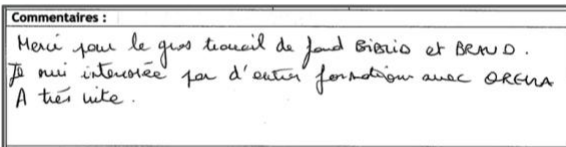 Commentaires :
Merci pour le gros travail de fond BIBLIO et BRAUD.
Je suis intéressée par d'autres formations avec OREGMA
A très vite.